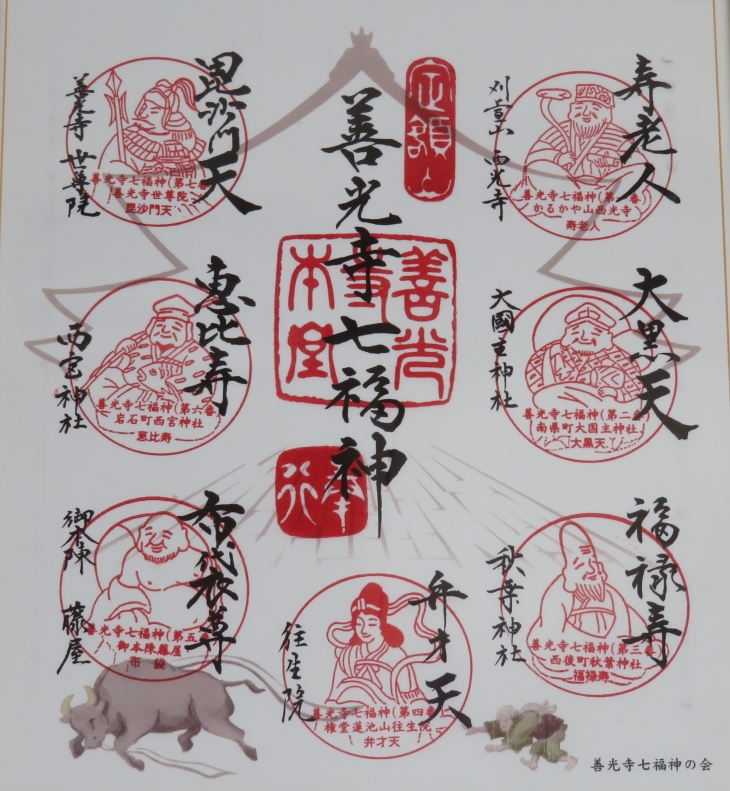 定額山
善光寺七福神
善光寺本堂
寿老人
刈萱山 西光寺
善光寺七福神(第一番)
かるかや山西光寺
寿老人
大黒天
大國主神社
善光寺七福神(第二番)
南県町大国主神社
大黒天
福禄寿
秋葉神社
善光寺七福神(第三番)
西後町秋葉神社
福禄寿
弁才天
往生院
善光寺七福神(第四番)
権堂蓮池山往生院
弁才天
布袋尊
御本陳 藤屋
善光寺七福神(第五番)
御本陳藤屋
布袋
恵比寿
西宮神社
善光寺七福神(第六番)
岩石町西宮神社
恵比寿
毘沙門天
善光寺 世尊院
善光寺七福神(第七番)
善光寺世尊院
毘沙門天
善光寺七福神の会